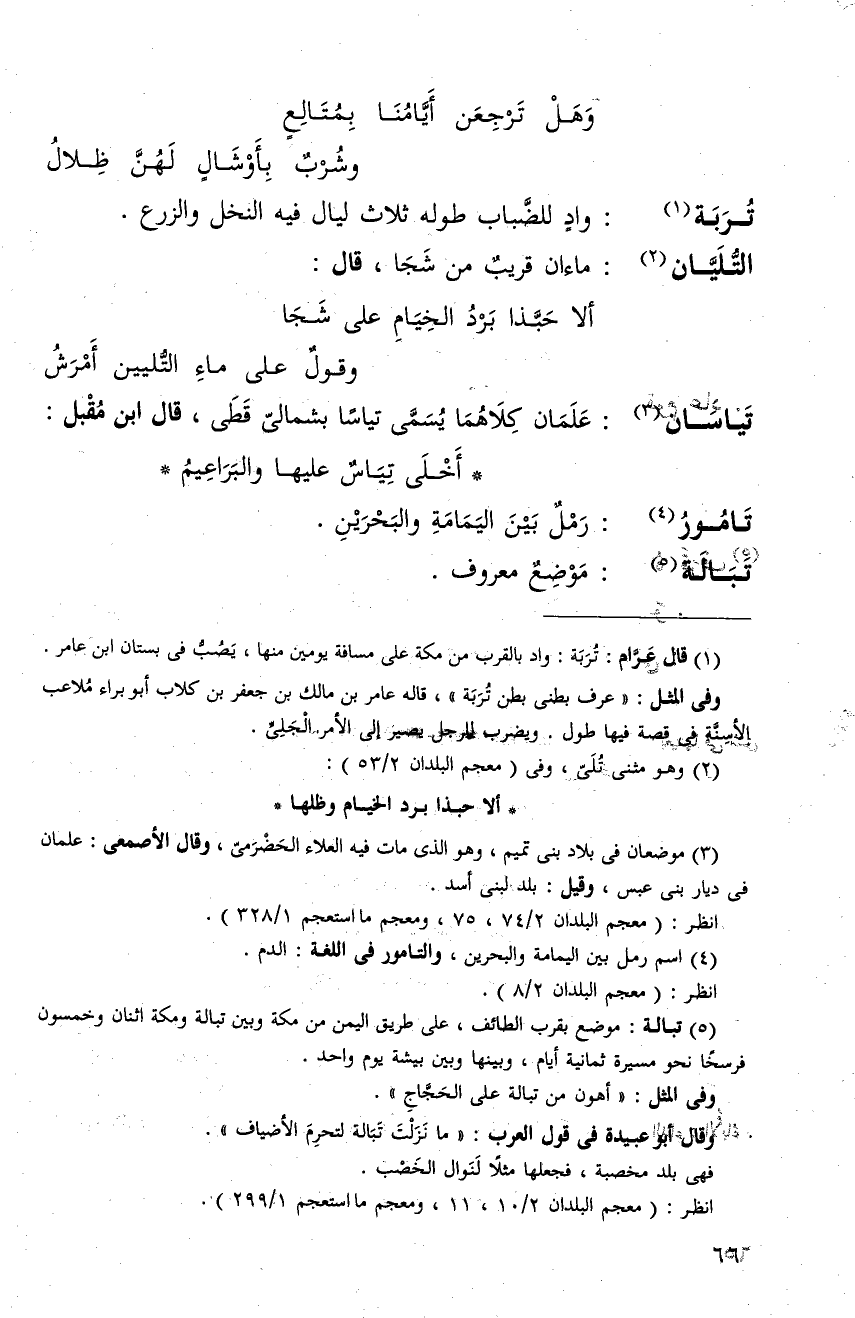 وَهَلْ تَرْجِعَن أَيَّامُنَا بِمُتَالِعٍ
وشُرْبٌ بِأَوْشَالٍ لَهُنَّ ظِلالُ
تُرَبَة (١) : وادٍ للضَّباب طوله ثلاث ليال فيه النخل والزرع .
التُّلَيَّان (٢) : ماءان قريبٌ من شَجَا ، قال :
ألا حَبَّذا بَرْدُ الخِيَامِ على شَجَا
وقولٌ على ماءِ التُّليين أَمْرَسُ
تَيَاسَان (٣) : عَلَمَان كِلَاهُمَا يُسَمَّى تياسًا بشمالىّ قَطَى ، قال ابن مُقْبل :
* أَخْلَى تِيَاسٌ عليها والبَرَاعِيمُ *
تَامُورُ (٤) : رَمْلٌ بَيْنَ اليَمَامَةِ والبَحْرَيْنِ .
تَبَالَة (٥) : مَوْضِعٌ معروف .
(١) قال عَرَّام : تُرَبَة : واد بالقرب من مكة على مسافة يومين منها ، يَصُبُّ فى بستان ابن عامر .
وفى المثل : « عرف بطنى بطن تُرَبَة » ، قاله عامر بن مالك بن جعفر بن كلاب أبو براء مُلاعب
الأَسِنَّةِ فى قصة فيها طول . ويضرب للرجل يصير إلى الأمر الْجَلِىِّ .
(٢) وهو مثنى تُلَىّ ، وفى ( معجم البلدان ٥٣/٢ ) :
* ألا حبذا برد الخيام وظلها *
(٣) موضعان فى بلاد بنى تميم ، وهو الذى مات فيه العلاء الحَضْرَمىّ ، وقال الأصمعى : علمان
فى ديار بنى عبس ، وقيل : بلد لبنى أسد .
انظر : ( معجم البلدان ٧٤/٢ ، ٧٥ ، ومعجم ما استعجم ٣٢٨/١ ) .
(٤) اسم رمل بين اليمامة والبحرين ، والتامور فى اللغة : الدم .
انظر : ( معجم البلدان ٨/٢ ) .
(٥) تبالة : موضع بقرب الطائف ، على طريق اليمن من مكة وبين تبالة ومكة اثنان وخمسون
فرسخًا نحو مسيرة ثمانية أيام ، وبينها وبين بيشة يوم واحد .
وفى المثل : « أهون من تبالة على الحَجَّاجِ » .
وقال أبو عبيدة فى قول العرب : « ما نَزَلْتَ تَبَالة لتحرِمَ الأضياف » .
فهى بلد مخصبة ، فجعلها مثلًا لَنَوال الخَصْب .
انظر : ( معجم البلدان ١٠/٢ ، ١١ ، ومعجم ما استعجم ٢٩٩/١ ) .